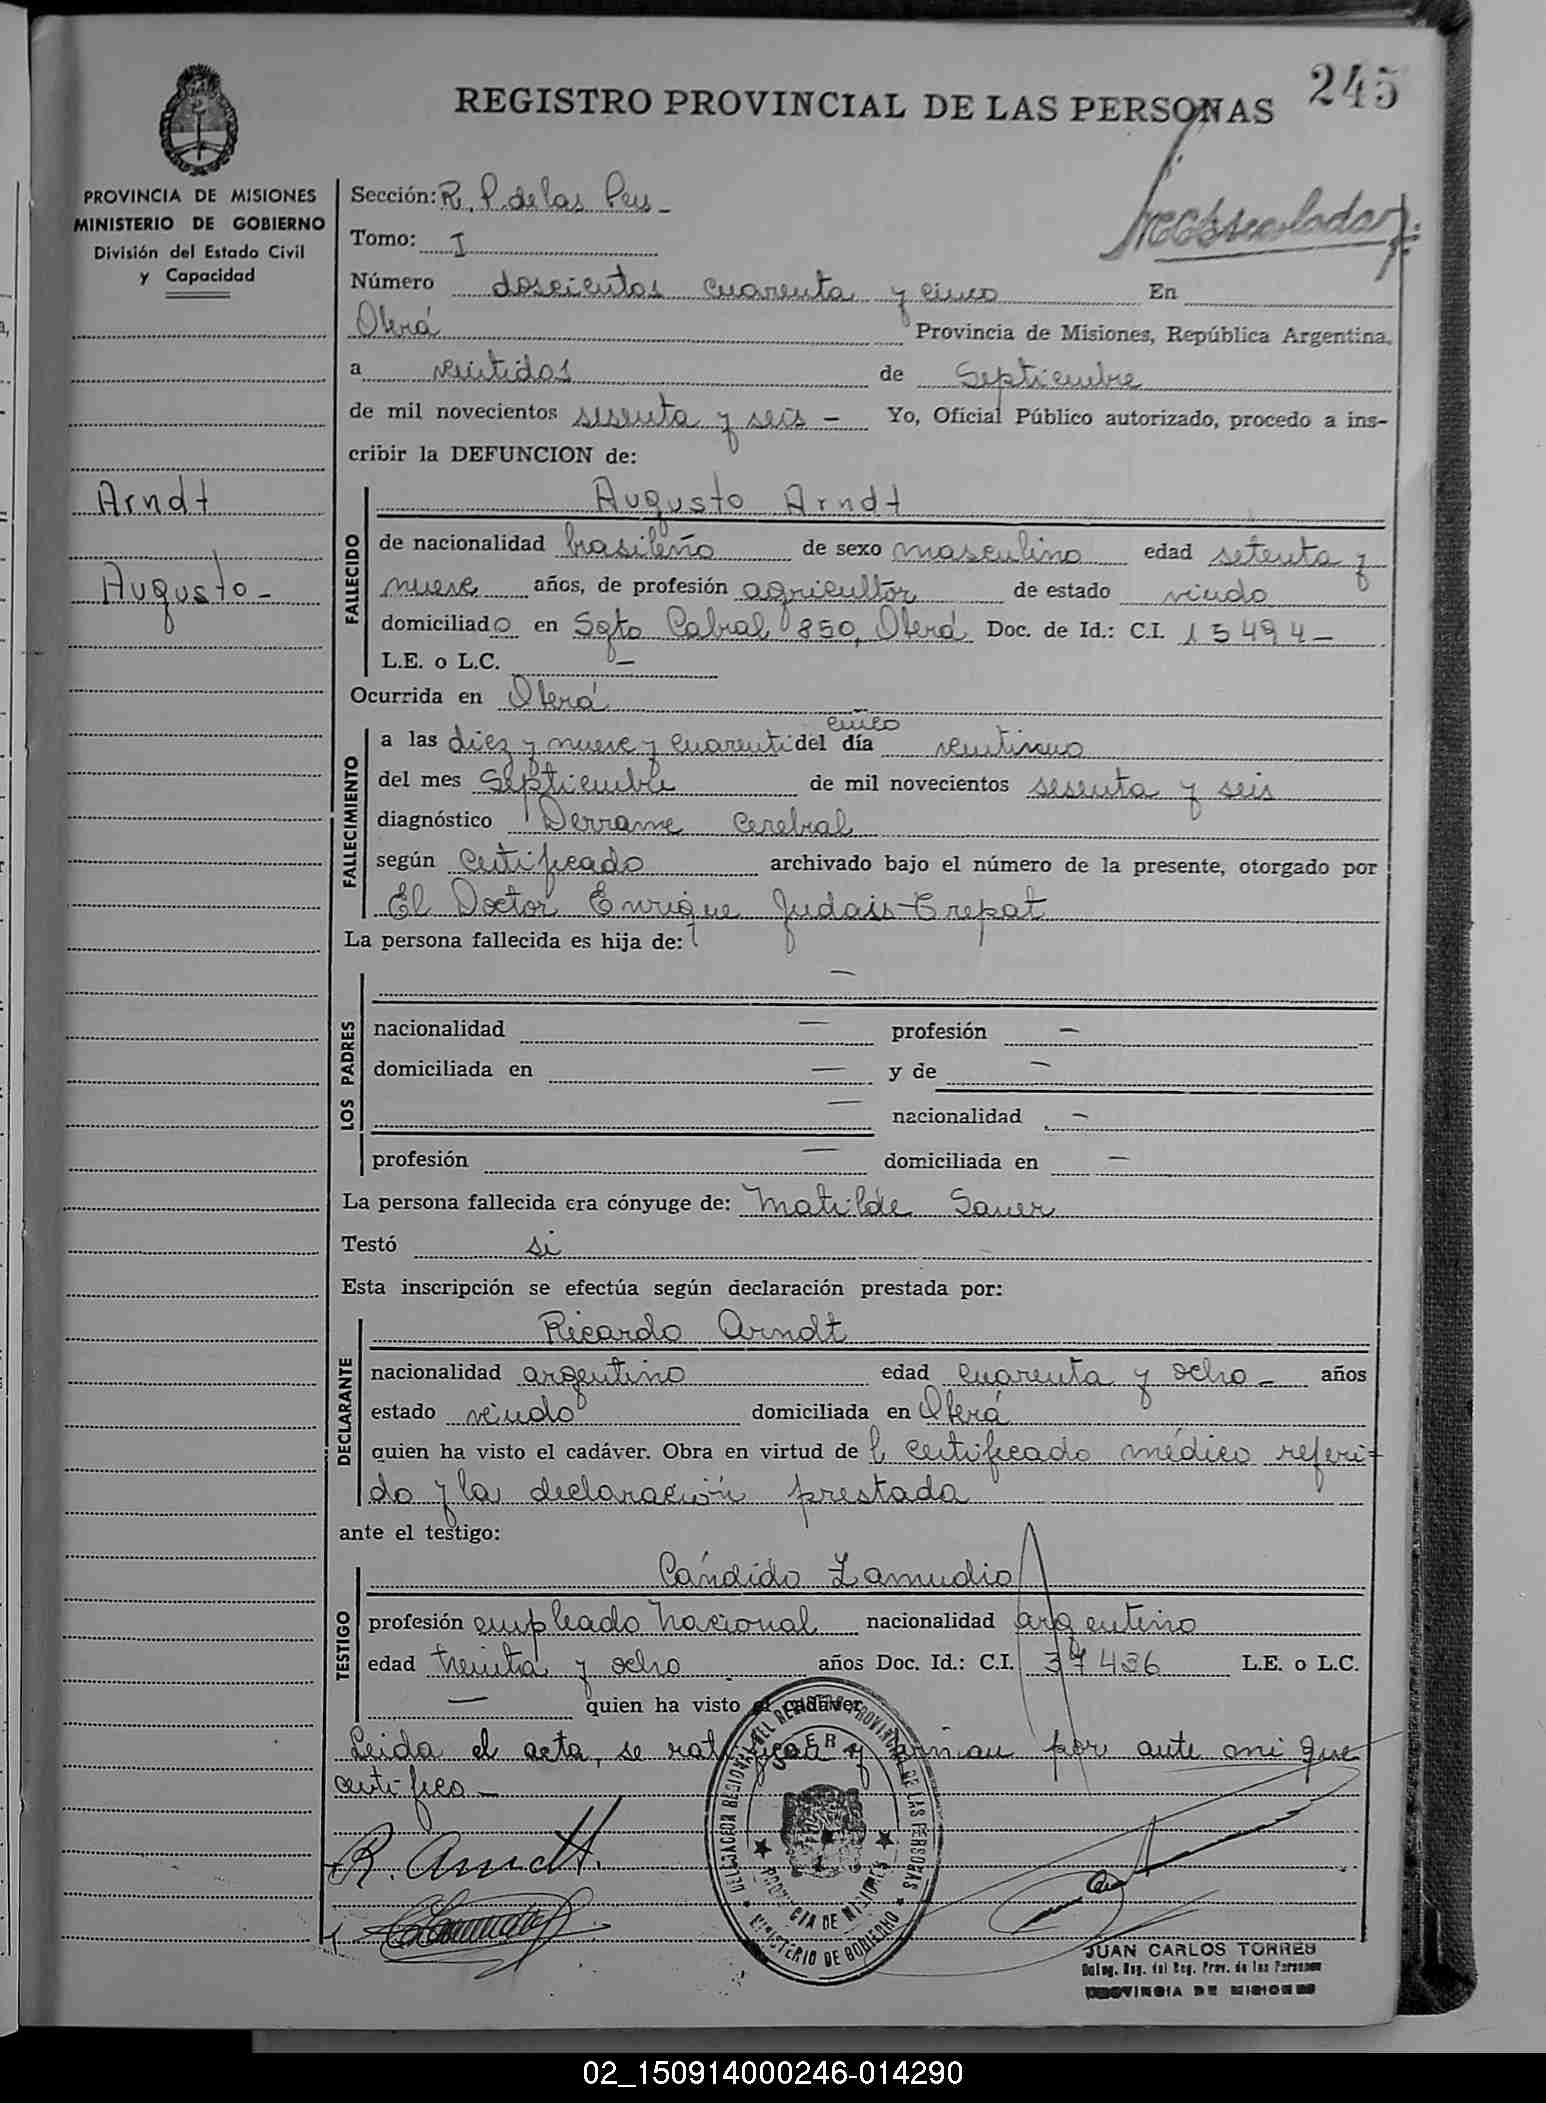 245
REGISTRO PROVINCIAL DE LAS PERSONAS
PROVINCIA DE MISIONES
MINISTERIO DE GOBIERNO
División del Estado Civil
y Capacidad
Arndt
Augusto -
Sección: R. P. de las Pers -
Tomo: I
Número doscientos cuarenta y cinco En
Oberá Provincia de Misiones, República Argentina,
a veintidos de Septiembre
de mil novecientos sesenta y seis - Yo, Oficial Público autorizado, procedo a ins-
cribir la DEFUNCION de:
FALLECIDO
Augusto Arndt
de nacionalidad brasileño de sexo masculino edad setenta y
nueve años, de profesión agricultor de estado viudo
domiciliado en Sgto Cabral 850, Oberá Doc. de Id.: C.I. 15494 -
L.E. o L.C. -
Ocurrida en Oberá
FALLECIMIENTO
cinco
a las diez y nueve y cuarenti del día veintiuno
del mes Septiembre de mil novecientos sesenta y seis
diagnóstico Derrame Cerebral
según certificado archivado bajo el número de la presente, otorgado por
El Doctor Enrique Judais-Crepat
La persona fallecida es hija de:
LOS PADRES
-
nacionalidad - profesión -
domiciliada en - y de -
- nacionalidad -
profesión - domiciliada en -
La persona fallecida era cónyuge de: Matilde Sauer
Testó si
Esta inscripción se efectúa según declaración prestada por:
DECLARANTE
Ricardo Arndt
nacionalidad argentino edad cuarenta y ocho - años
estado viudo domiciliada en Oberá
quien ha visto el cadáver. Obra en virtud de l certificado médico referi-
do y la declaración prestada
ante el testigo:
TESTIGO
Cándido Zamudio
profesión empleado Nacional nacionalidad argentino
edad treinta y ocho años Doc. Id.: C.I. 37436 L.E. o L.C.
- quien ha visto el cadáver
Leida el acta, se ratifican y firman por ante mi que
certifico -
R. Arndt.
DELEGACION REGIONAL DEL REGISTRO PROVINCIAL DE LAS PERSONAS
OBERA
PROVINCIA DE MISIONES
MINISTERIO DE GOBIERNO
JUAN CARLOS TORRES
Deleg. Reg. del Reg. Prov. de las Personas
PROVINCIA DE MISIONES
02_150914000246-014290